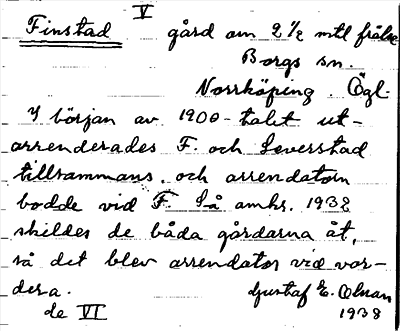 V
Finstad gård om 2 1/2 mtl frälse
Borgs sn.
Norrköping. Ögl.
I början av 1900-talet ut-
arrenderades F. och Leverstad
tillsammans och arrendatorn
bodde vid F. Så omkr. 1932
skildes de båda gårdarna åt,
så det blev arrendator vid var-
dera.
Gustaf E.
de VI 1938